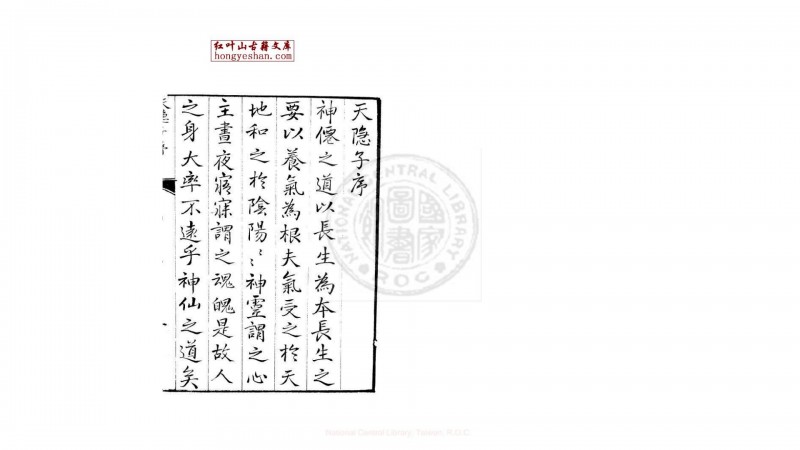 红叶山古籍文库
hongyeshan.com
天隐子序
神僊之道以長生為本長生之
要以養氣為根夫氣受之於天
地和之於陰陽〻神靈謂之心
主晝夜寤寐謂之魂魄是故人
之身大率不遠乎神仙之道矣
NATIONAL CENTRAL LIBRARY
R.O.C.
國家
圖書
National Central Library, Taiwan, R.O.C.